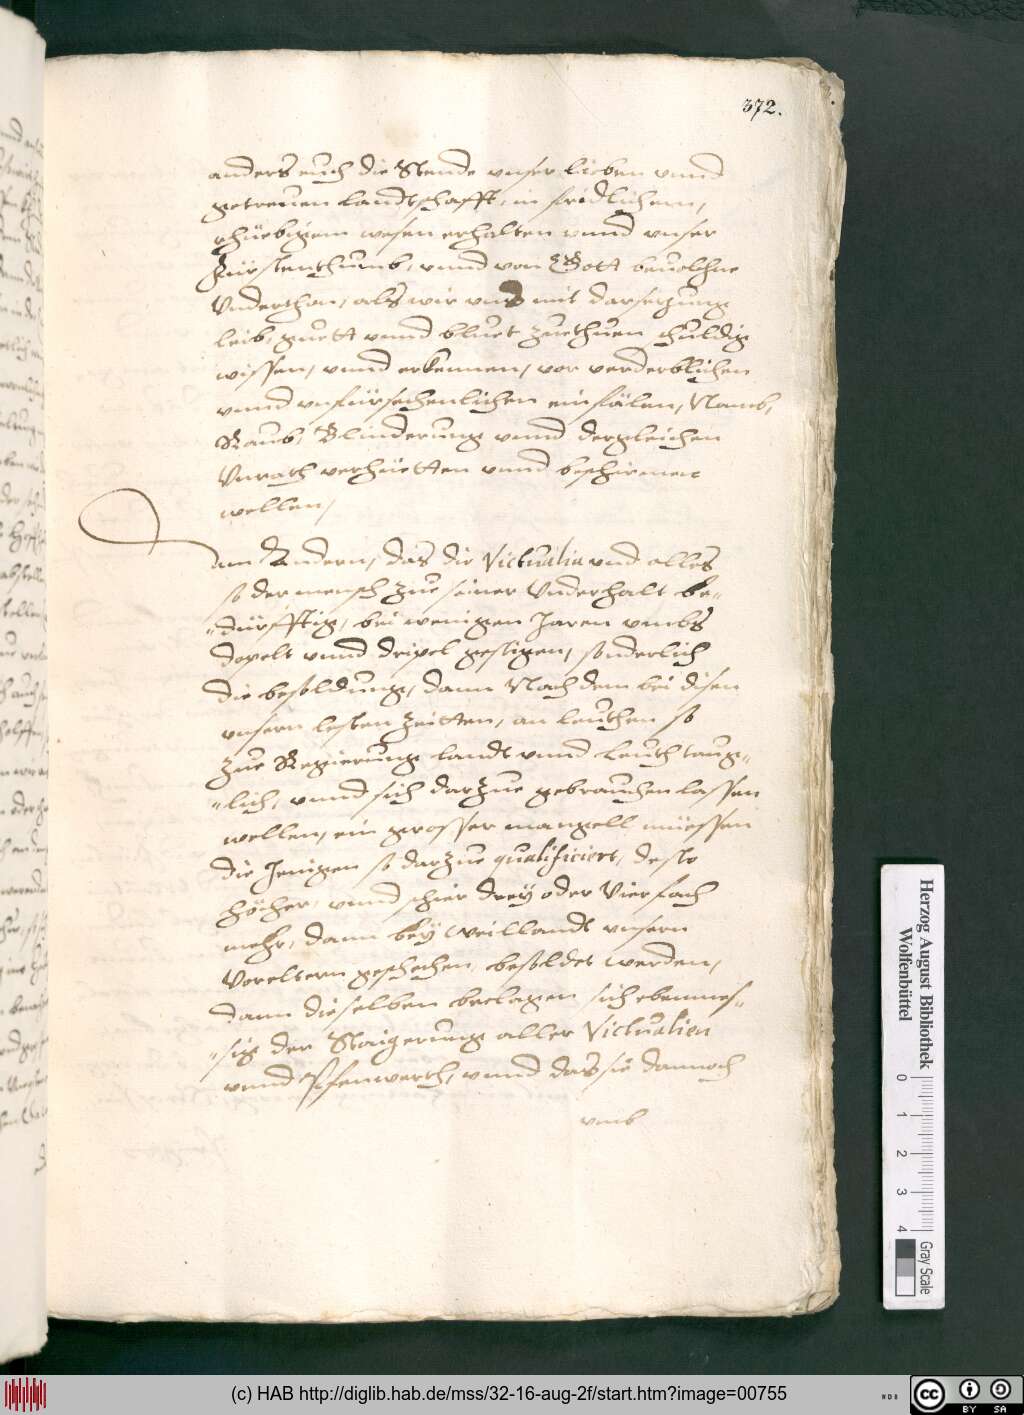 372.
anders euch die Stende unser lieben unnd
getreuen landtschafft, in fridlichem,
rhüebigem wesen erhalten unnd unser
Fürstenthumb, unnd von Gott bevolchne
Underthon, als wir uns mit darsetzung
leib, guett unnd bluet zuethuen schuldig
wissen, unnd erkennen, vor verderblichen
unnd unfürsechenlichen einfälen, Namb,
Raub, Blinderung unnd dergleichen
Unrath verhüetten unnd beschirmen
wellen,
Zum Andern, das die Victualia und alles
so der mensch zue seiner Underhalt be„
„dürfftig, bei wenigen Jaren umbs
dopelt unnd dripel gestigen, sonderlich
die besoldung, dann Nach dem bei disen
unsern lesten zeitten, an leuthen so
zue Regierung landt unnd Leuth taug„
„lich, unnd sich darzue gebrauchen lassen
wellen, ein grosser mangell müessen
die Jenigen so darzue qualificiert, desto
höcher, unnd schier drey oder Vierfach
mehr, dann bey weillandt unsern
Voreltern geschechen, besoldet werden,
dann dieselben beclagen sich ebenmes„
„sig der Staigerung aller Victualien
unnd Pfenwerth, unnd das sie dannoch
umb
Herzog August Bibliothek
Wolfenbüttel
0 1 2 3 4
Gray Scale
(c) HAB http://diglib.hab.de/mss/32-16-aug-2f/start.htm?image=00755
WDB
cc BY SA